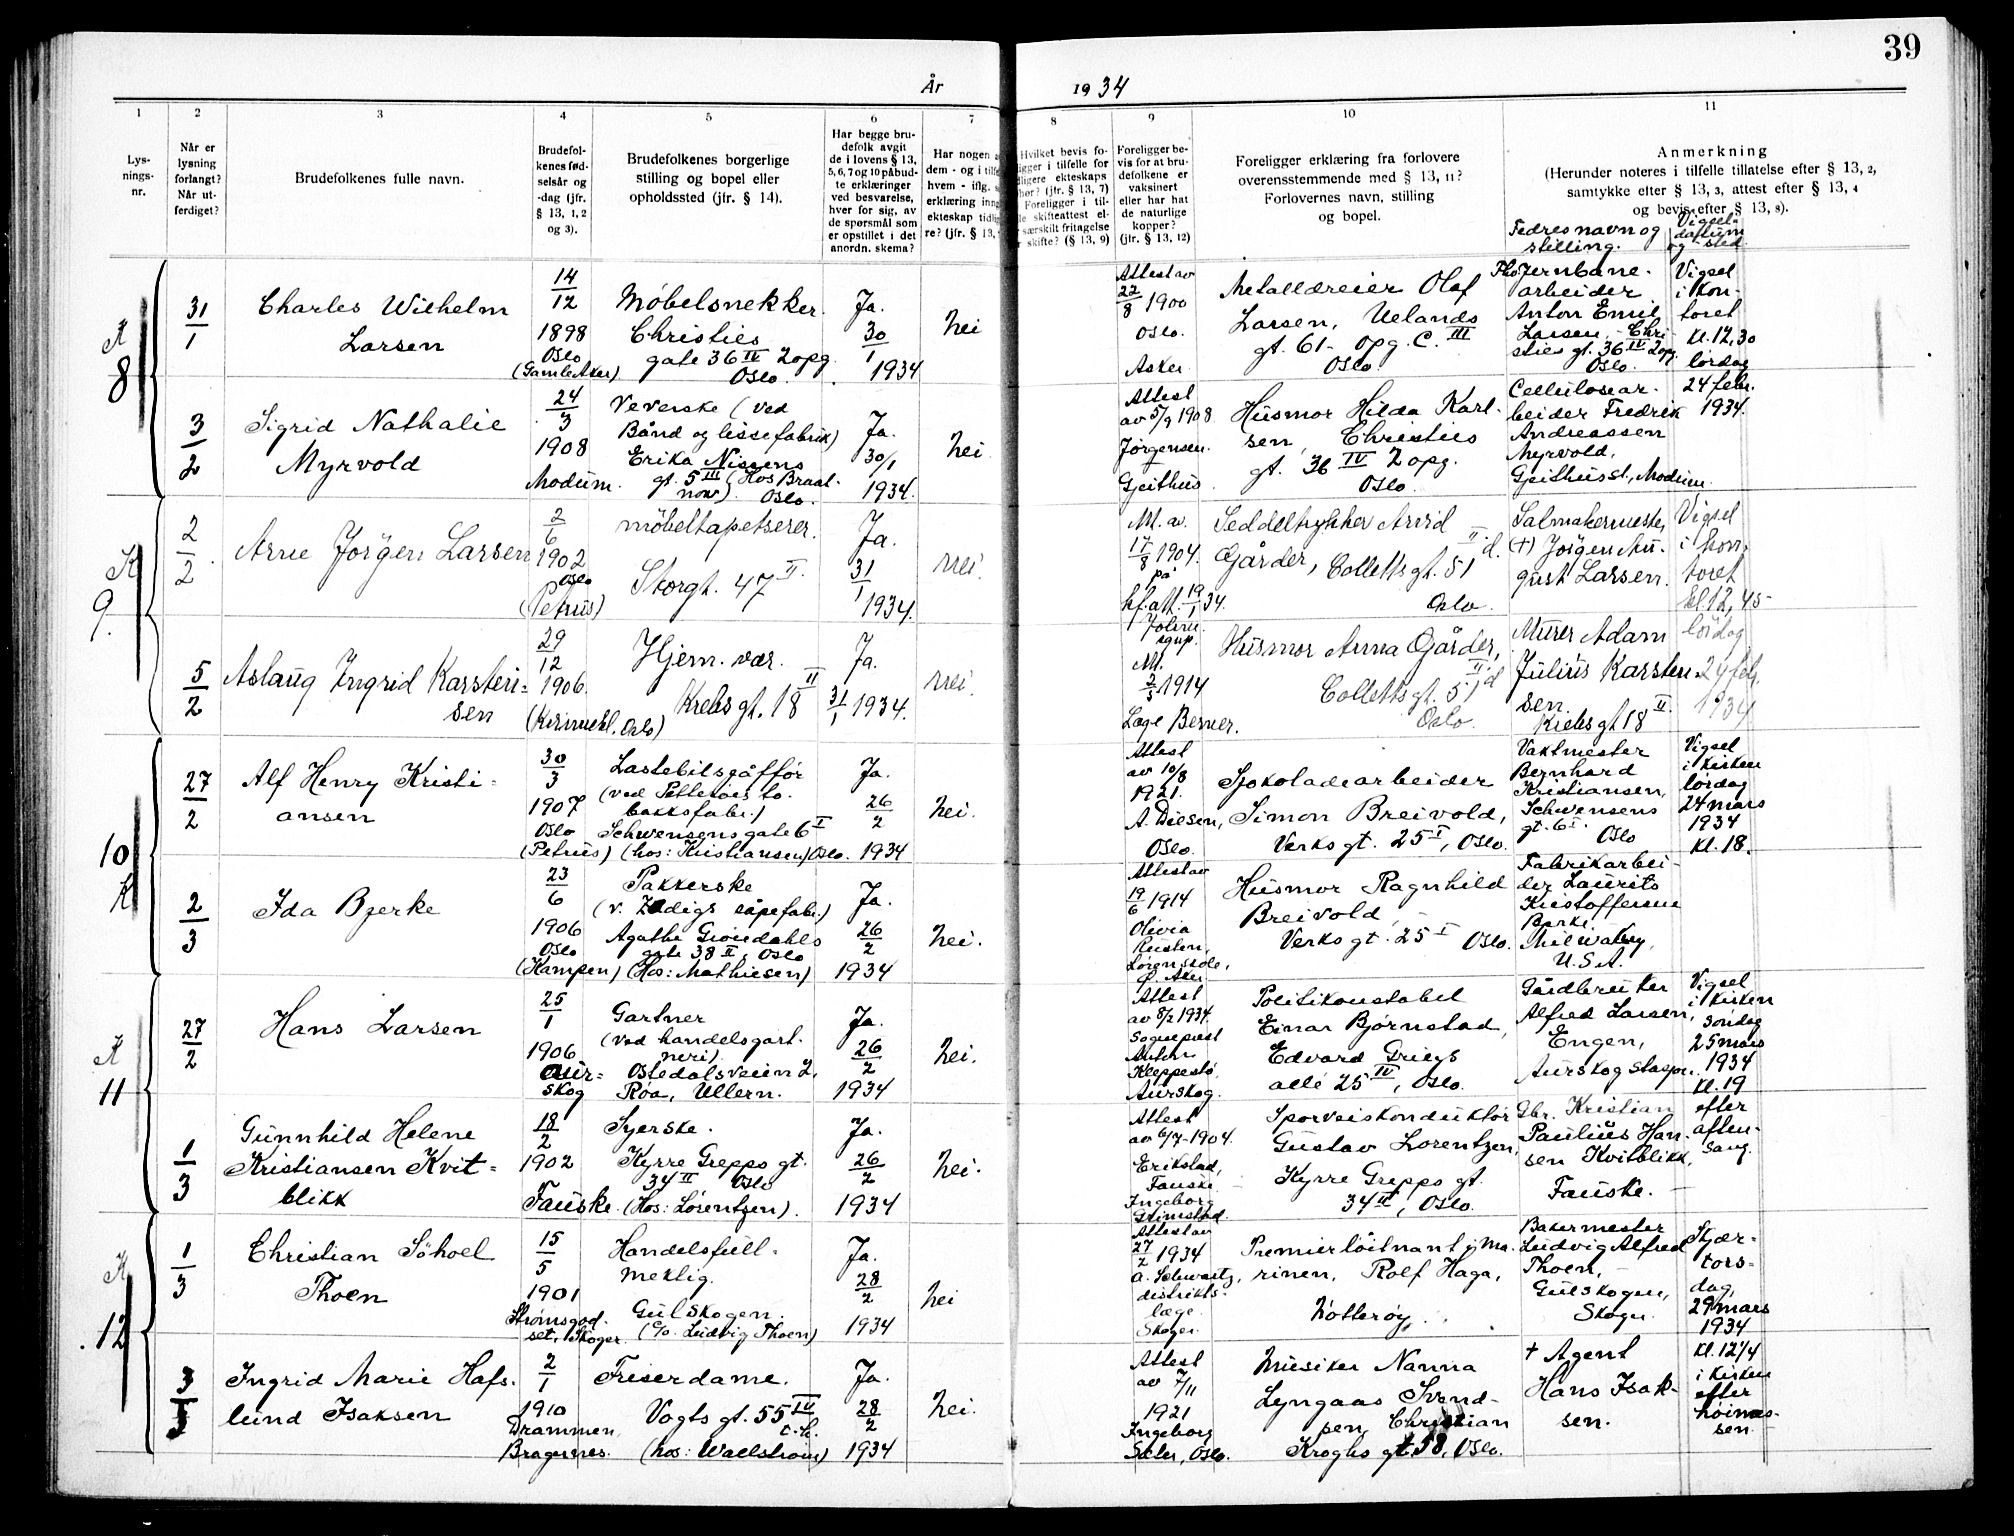 39
År 1934
1
2
3
4
5
6
7
8
9
10
11
Lys-
nings-
nr.
Når er
lysning
forlangt?
Når ut-
ferdiget?
Brudefolkenes fulle navn.
Brudefol-
kenes fød-
selsår og
-dag (jfr.
§ 13, 1, 2
og 3).
Brudefolkenes borgerlige
stilling og bopel eller
opholdssted (jfr. § 14).
Har begge bru-
defolk avgit
de i lovens § 13,
5, 6, 7 og 10 påbud-
te erklæringer
ved besvarelse,
hver for sig, av
de spørsmål som
er opstillet i det
anordn. skema?
Har nogen a
dem - og i tilfe
hvem - iflg. s
erklæring inng
ekteskap tidlig
re? (jfr. § 13,
Hvilket bevis fo-
ligger i tilfelle for
dligere ekteskaps
phør? (jfr. § 13, 7)
Foreligger i til-
le skifteattest el-
særskilt fritagelse
r skifte? (§ 13, 9)
Foreligger be-
vis for at bru-
defolkene er
vaksinert
eller har hat
de naturlige
kopper?
(jfr. § 13, 12)
Foreligger erklæring fra forlovere
overensstemmende med § 13, 11?
Forlovernes navn, stilling
og bopel.
Anmerkning
(Herunder noteres i tilfelle tillatelse efter § 13, 2,
samtykke efter § 13, 3, attest efter § 13, 4
og bevis efter § 13, 8).
Fedres navn og
stilling.
Vigsel-
datum
og sted.
K
8
31/1
Charles Wilhelm
Larsen
14/12
1898
Oslo
(Gamle Aker)
Møbelsnekker.
Christies
gate 36 IV 2 opg.
Oslo.
Ja.
30/1
1934
Nei
Attest av
22/8 1900
Oslo.
Asker
Metalldreier Olaf Tho
Larsen, Uelands
gt. 61 - opg. C. III
Oslo
Jernbane-
arbeider
Anton Emil
Larsen, - Chri-
sties gt. 36 IV 2 opg.
Oslo.
Vigsel
i kon-
toret
kl. 12,30
lørdag
24 febr.
1934.
3/2
Sigrid Nathalie
Myrvold
24/3
1908
Modum.
Veverske (ved
Bånd og lissefabrik)
Erika Nissens
gt. 5 III (Hos Braat-
now). Oslo.
Ja.
30/1
1934.
Nei.
Attest
av 5/9 1908
Jørgensen.
Gjeithus
Husmor Hilda Karl-
sen, Christies
gt. 36 IV 2 opg.
Oslo.
Cellulosear-
beider Fredrik
Andreassen
Myrvold,
Gjeithus st., Modum.
K
9.
2/2
Arne Jörgen Larsen
2/6
1902
Oslo
(Petrus)
møbeltapetserer.
Storgt. 47 II.
Ja.
31/1
1934.
nei.
Att. av.
17/8 1904.
på
hf. att. 19/1 34.
Seddeltrykker Arvid
Gårder, Colletts gt. 51 II d.
Oslo.
Salmakermester
(†) Jörgen Au-
gust Larsen.
Vigsel
i kon-
toret
kl 12,45
lördag
24 feb.
1934
5/2
Aslaug Ingrid Karsten-
sen
29/12
1906.
Hjem. vær.
Krebs gt. 18 II
Ja.
31/1 1934.
nei.
Att.
1914
Læge Berner.
Husmor Anna Gårder,
Colletts gt. 51 II d
Oslo.
Murer Adam
Julius Karsten-
sen.
Krebs gt 18 II.
10
K
27/2
Alf Henry Kristi-
ansen
30/3
1907
Oslo
(Petrus)
Lastebilsjåffør
(ved Petterøes to-
bakksfabr.)
Schwensens gate 6 I
(hos: Kristiansen) Oslo.
Ja.
26/2
1934
Nei.
Attest
av 10/8
1921.
A. Diesen,
Oslo.
Sjokoladearbeider
Simon Breivold,
Verks gt. 25 I, Oslo.
Vaktmester
Bernhard
Kristiansen,
Schwensens
gt. 6 I.
Oslo
Vigsel
i kirken
lørdag
24 mars
1934
kl. 18.
2/3
Ida Bjerke
23/6
1906
Oslo
(Kampen)
Pakkerske
(v. Zadigs såpefabr.)
Agathe Grøndahls
gate 38 II, Oslo
(Hos: Mathiesen)
Ja.
26/2
1934
Nei.
Attest av
19/6 1914
Olivia
Rusten,
Løren skole,
Ø. Aker
Husmor Ragnhild
Breivold,
Verks gt. 25 I Oslo.
Fabrikarbei-
der Laurits
Kristoffersen
Milwakey,
U.S.A.
K
11
27/2
Hans Larsen
25/1
1906
Aur-
skog
Gartner
(ved handelsgart-
neri).
Røa, Ullern.
Ja.
26/2
1934
Nei.
Attest
av 8/2 1934.
Sogneprest
Anton
Kleppestø,
Aurskog.
Politikonstabel
Einar Bjørnstad,
Edvard Griegs
allé 25 IV, Oslo.
Gårdbruker
Alfred Larsen,
Engen,
Aurskog stasjon.
Vigsel
i kirken
søndag
25 mars
1934
kl. 19
efter
aften-
sang.
1/3
Gunnhild Helene
Kristiansen Kvit-
blikk
18/2
1902
Fauske.
Syerske.
Kyrre Grepps gt.
34 II Oslo
(Hos: Lorentzen).
Ja.
26/2
1934
Nei.
Attest
av 6/7 - 1904.
Erikstad,
Fauske
Ingeborg
Grimstad
Sporveiskonduktør
Gustav Lorentzen,
Kyrre Grepps gt.
34 II, Oslo.
Gbr. Kristian
Paulius Han-
sen Kvitblikk,
Fauske.
K
12
1/3
Christian Söhoel
Thoen
15/5
1901
Strømsgod-
set, Skoger.
Handelsfull-
mektig.
Gulskogen.
(c/o. Ludvig Thoen)
Ja.
28/2
1934
Nei
Attest av
27/2 1934
a. Schwartz,
distrikts-
læge
Skoger.
Premierløitnant i Ma-
rinen, Rolf Haga,
Nøtterøy.
Bakermester
Ludvig Alfred
Thoen,
Gulskogen,
Skoger.
Skjær-
tors-
dag,
29 mars
1934
Kl. 12 1/4
i kirken
efter
høimes-
sen.
3/3
Ingrid Marie Hafs-
lund Isaksen
2/1
1910
Drammen,
Bragernes.
Friserdame.
Vogts gt. 55 IV
(hos: Wallstrøm)
Ja.
28/2
1934
Nei.
Attest
av 7/11
1921
Ingeborg
Sæter, Oslo.
Musiker Nanna
Lyngaas Svend-
sen, Christian
Kroghs gt. 58, Oslo.
† Agent
Hans Isak-
sen.